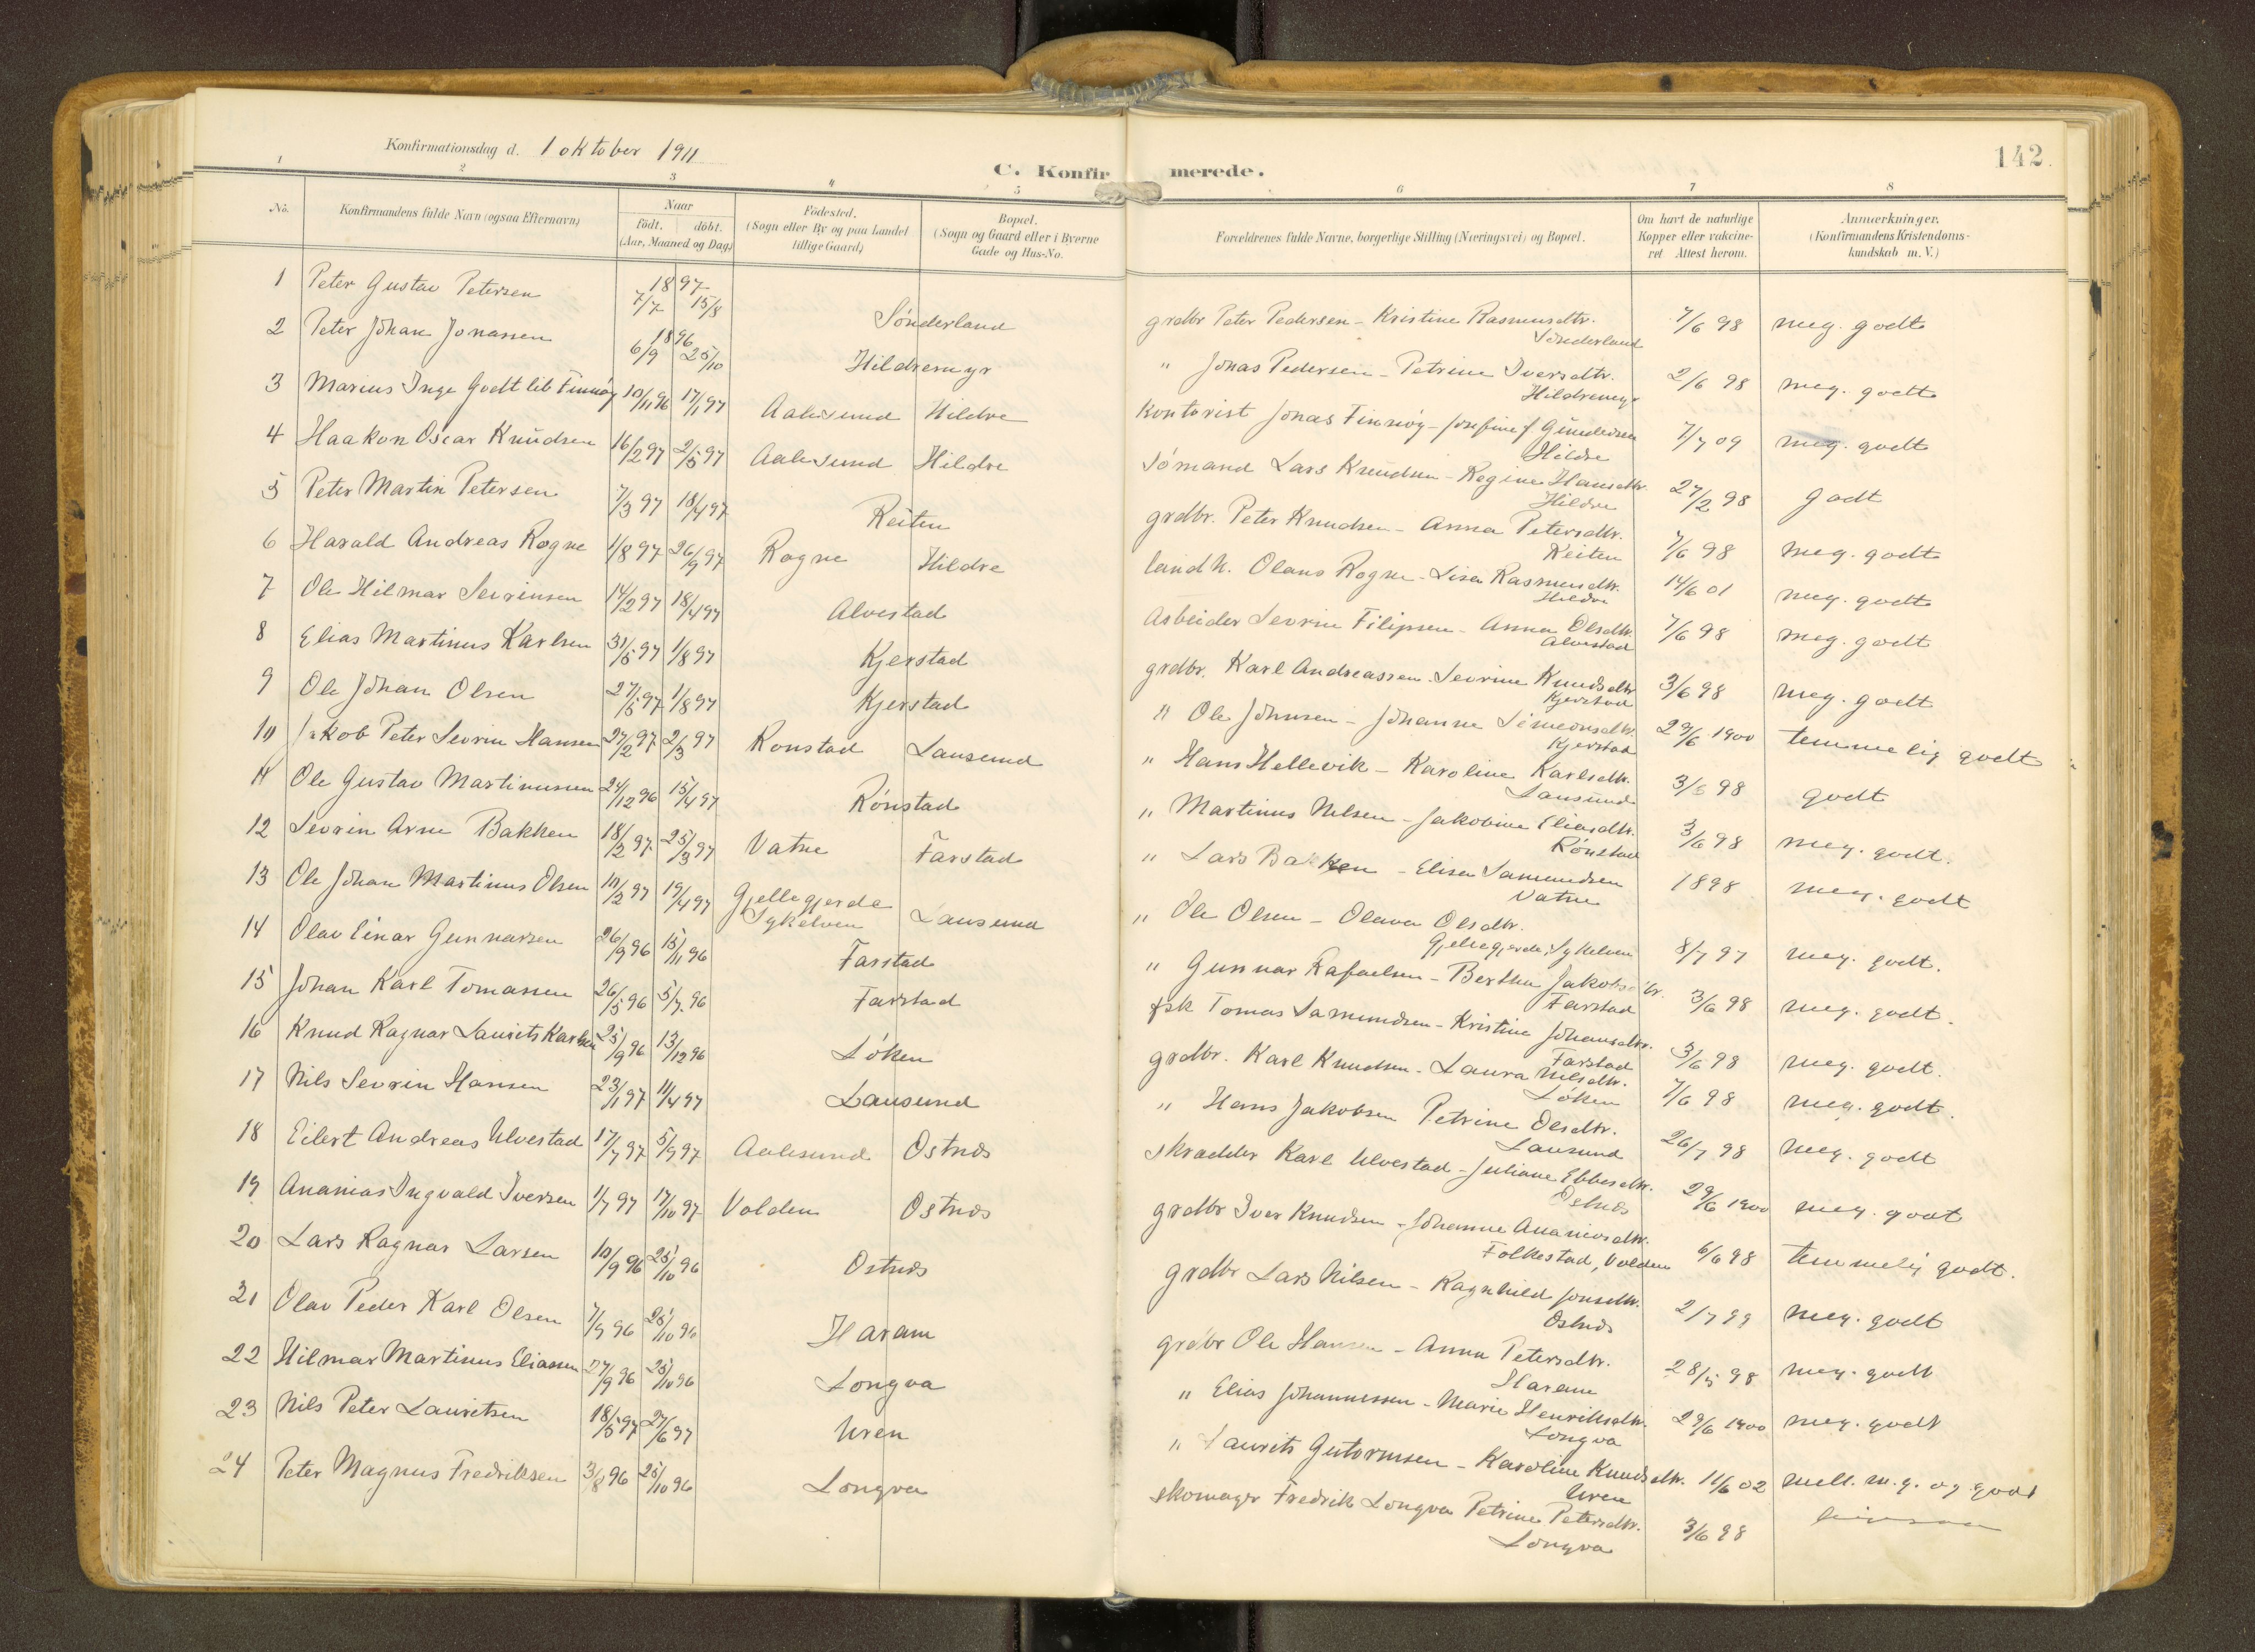 Konfirmationsdag d. 1 oktober 1911
C. Konfirmerede.
142.
1 2 3 4 5 6 7 8
No.
Konfirmandens fulde Navn (ogsaa Efternavn)
Naar
födt. döbt.
(Aar, Maaned og Dag)
Födested.
(Sogn eller By og paa Landet
tillige Gaard)
Bopæl.
(Sogn og Gaard eller i Byerne
Gade og Hus-No.
Forældrenes fulde Navne, borgerlige Stilling (Næringsvei) og Bopæl.
Om havt de naturlige
Kopper eller vakcine-
ret Attest herom.
Anmærkninger.
(Konfirmandens Kristendoms-
kundskab m. V.)
1 Peter Gustav Petersen 1897 7/7 15/8 Sönderland grdbr Peter Pedersen - Kristine Rasmusdtr. 7/6 98 meg. godt
Sönderland
2 Peter Johan Jonassen 1896 6/9 25/10 Hildremyr " Jonas Pedersen - Petrine Iversdtr. 2/6 98 meg. godt
Hildremyr
3 Marius Inge Godtlib Finnöy 10/11 96 17/1 97 Aalesund Hildre Kontorist Jonas Finnöy - Josefine f. Gundersen 7/7 09 meg. godt
Hildre
4 Haakon Oscar Knudsen 16/2 97 2/5 97 Aalesund Hildre Sömand Lars Knudsen - Regine Hansdtr. 27/2 98 godt
Hildre
5 Peter Martin Petersen 7/3 97 18/4 97 Reiten grdbr. Peter Knudsen - Anna Petersdtr. 7/6 98 meg. godt
Reiten
6 Harald Andreas Rogne 1/8 97 26/9 97 Rogne Hildre landh. Olaus Rogne - Lisa Rasmusdtr. 14/6 01 meg. godt
Hildre
7 Ole Hilmar Sevrinsen 14/2 97 18/4 97 Alvestad Arbeider Sevrin Filipsen - Anna Olsdtr. 7/6 98 meg. godt
Alvestad
8 Elias Martinus Karlsen 31/5 97 1/8 97 Kjerstad grdbr. Karl Andreassen - Sevrine Knudsdtr 3/6 98 meg. godt
Kjerstad
9 Ole Johan Olsen 27/5 97 1/8 97 Kjerstad " Ole Johnsen - Johanne Simeonsdtr. 29/6 1900 temmelig godt
Kjerstad
10 Jakob Peter Sevrin Hansen 27/2 97 2/3 97 Ronstad Lausund " Hans Hellevik - Karoline Karlsdtr. 3/6 98 godt
Lausund
11 Ole Gustav Martinussen 24/12 96 15/4 97 Rönstad " Martinus Nilsen - Jakobine Eliasdtr. 3/6 98 meg. godt.
Rönstad
12 Sevrin Arne Bakken 18/2 97 25/3 97 Vatne Farstad " Lars Bakken - Elisa Samundsen 1898 meg. godt
Vatne
13 Ole Johan Martinus Olsen 10/2 97 19/4 97 Gjellegjerde Lausund " Ole Olsen - Olava Olsdtr. 8/7 97 meg. godt.
Sykelven Gjellegjerde, Sykelven
14 Olav Einar Gunnarsen 26/9 96 15/11 96 Farstad " Gunnar Rafaelsen - Berthe Jakobsdtr. 3/6 98 meg. godt.
Farstad
15 Johan Karl Tomassen 26/5 96 5/7 96 Farstad fsk Tomas Samundsen - Kristine Johansdtr. 3/6 98 meg. godt.
Farstad
16 Knud Ragnar Laurits Karlsen 25/9 96 13/12 96 Löken grdbr. Karl Knudsen - Laura Nilsdtr. 7/6 98 meg. godt.
Löken
17 Nils Sevrin Hansen 23/1 97 11/4 97 Lausund " Hans Jakobsen Petrine Olsdtr. 26/7 98 meg. godt
Lausund
18 Eilert Andreas Ulvestad 17/7 97 5/9 97 Aalesund Ostnes Skrædder Karl Ulvestad - Juliane Ebbesdtr. 29/6 1900 meg. godt
Ostnes
19 Ananias Ingvald Iversen 1/7 97 17/10 97 Volden Ostnes grdbr Iver Knudsen - Johanne Ananiasdtr. 6/6 98 temmelig godt.
Folkestad, Volden
20 Lars Ragnar Larsen 10/9 96 25/10 96 Ostnes grdbr Lars Nilsen - Ragnhild Jonsdtr. 2/7 99 meg. godt
Ostnes
21 Olav Peder Karl Olsen 7/9 96 25/10 96 Haram grdbr Ole Hansen - Anna Petersdtr. 28/5 98 meg. godt
Haram
22 Hilmar Martinus Eliassen 27/9 96 25/10 96 Longva " Elias Johannessen - Marie Henriksdtr. 29/6 1900 meg. godt
Longva
23 Nils Peter Lauritsen 18/5 97 27/6 97 Uren " Laurits Gutormsen - Karoline Knudsdtr. 11/6 02 mell. m.g. og godt
Uren
24 Peter Magnus Fredriksen 3/8 96 25/10 96 Longva Skomager Fredrik Longva Petrine Petersdtr. 3/6 98
Longva